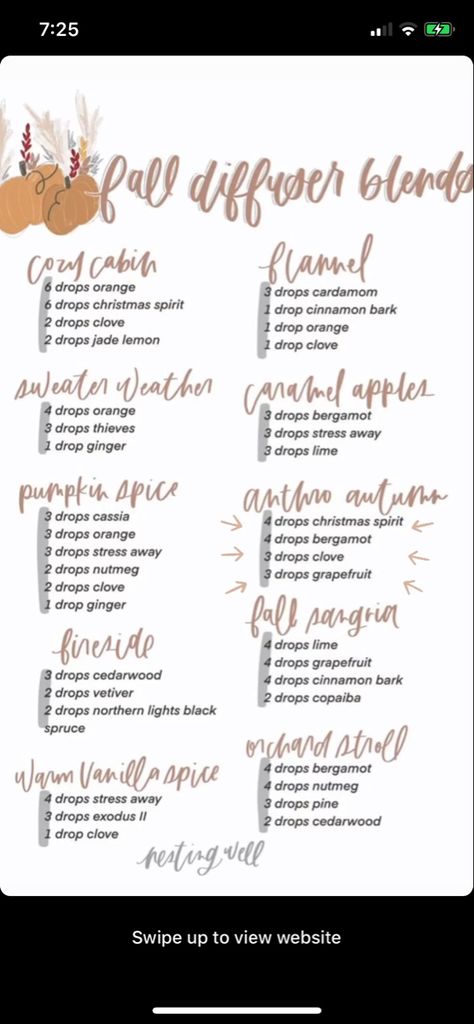 7:25
fall diffuser blends
cozy cabin
6 drops orange
6 drops christmas spirit
2 drops clove
2 drops jade lemon
sweater weather
4 drops orange
3 drops thieves
1 drop ginger
pumpkin spice
3 drops cassia
3 drops orange
3 drops stress away
2 drops nutmeg
2 drops clove
1 drop ginger
fireside
3 drops cedarwood
2 drops vetiver
2 drops northern lights black
spruce
warm vanilla spice
4 drops stress away
3 drops exodus II
1 drop clove
flannel
3 drops cardamom
1 drop cinnamon bark
1 drop orange
1 drop clove
caramel apples
3 drops bergamot
3 drops stress away
3 drops lime
anthro autumn
4 drops christmas spirit
4 drops bergamot
3 drops clove
3 drops grapefruit
fall sangria
4 drops lime
4 drops grapefruit
4 drops cinnamon bark
2 drops copaiba
orchard stroll
4 drops bergamot
4 drops nutmeg
3 drops pine
2 drops cedarwood
nesting well
Swipe up to view website